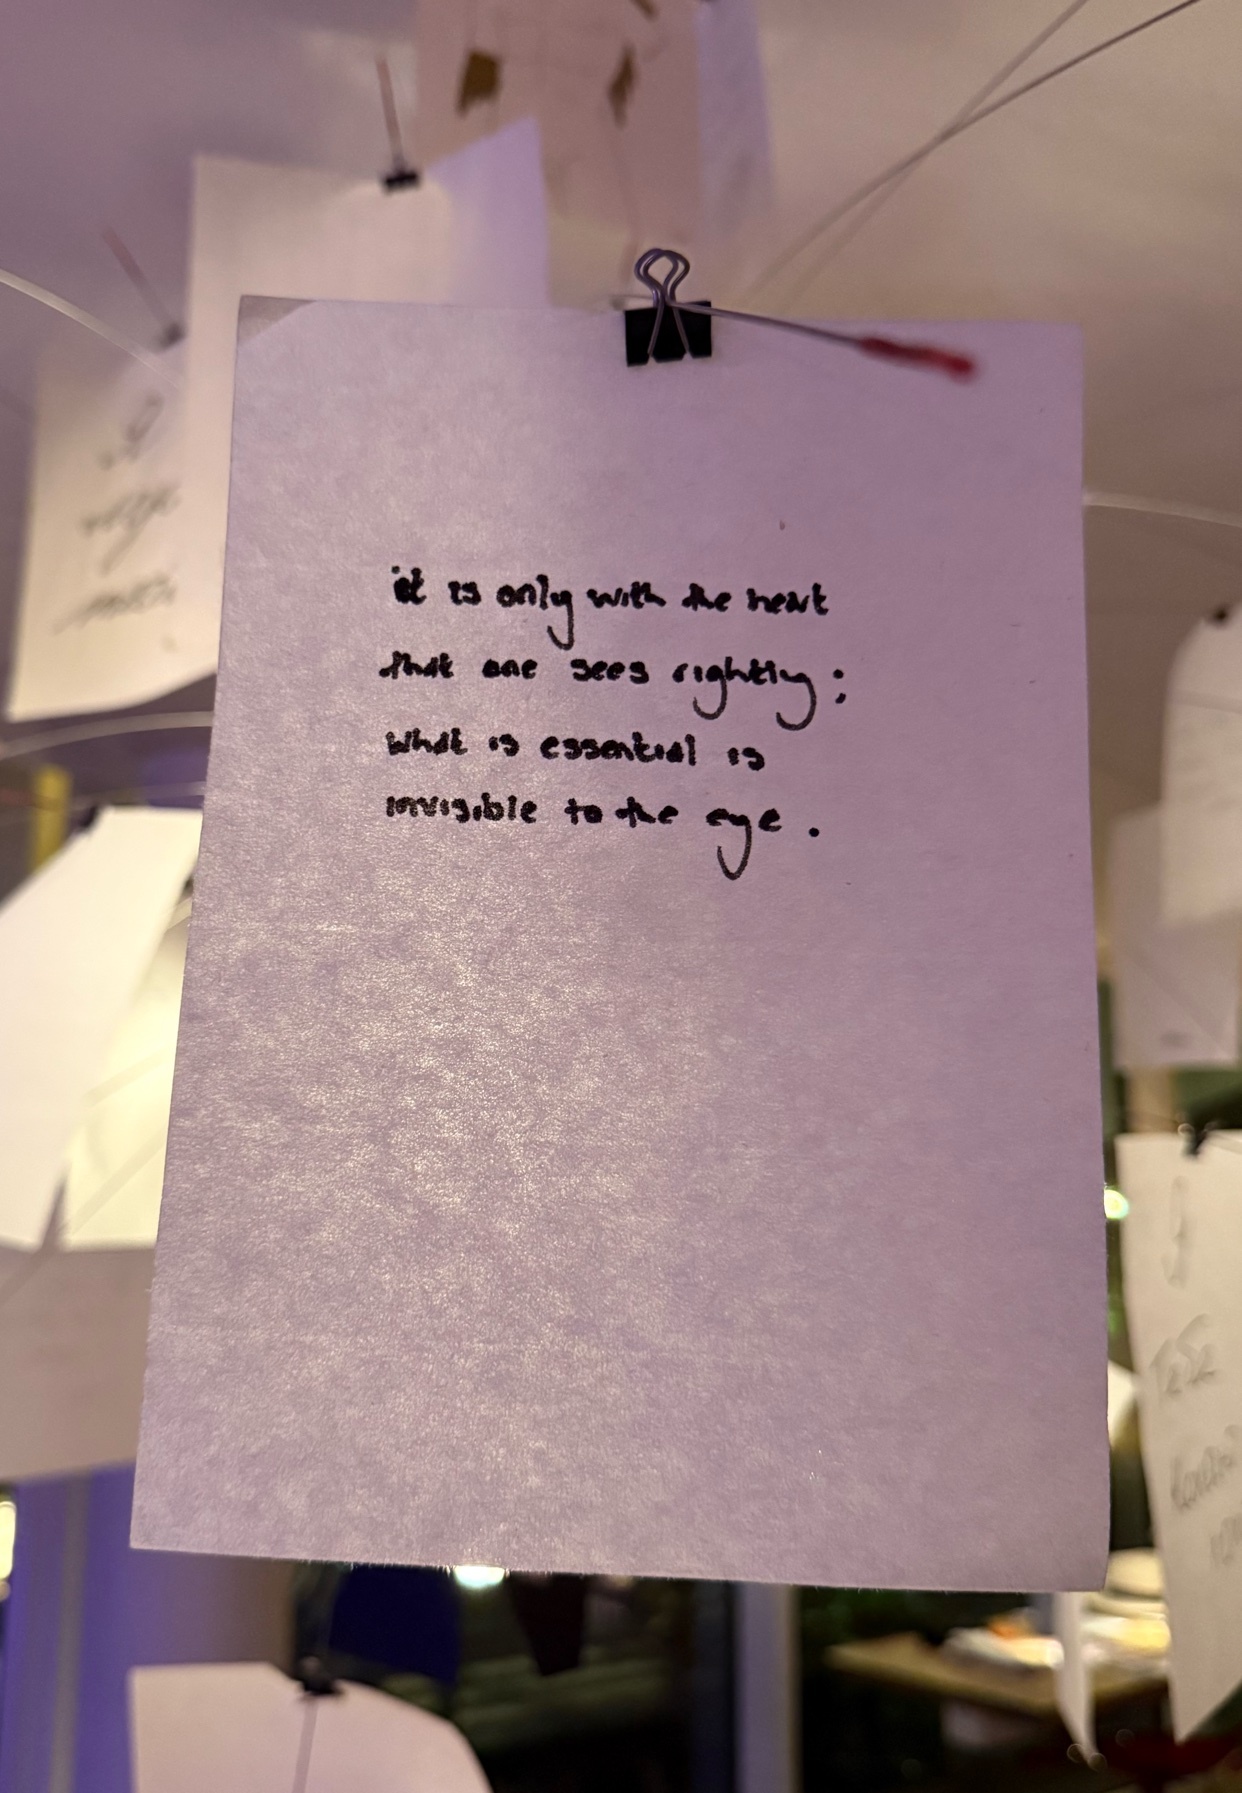 it is only with the heart
that one sees rightly;
what is essential is
invisible to the eye.